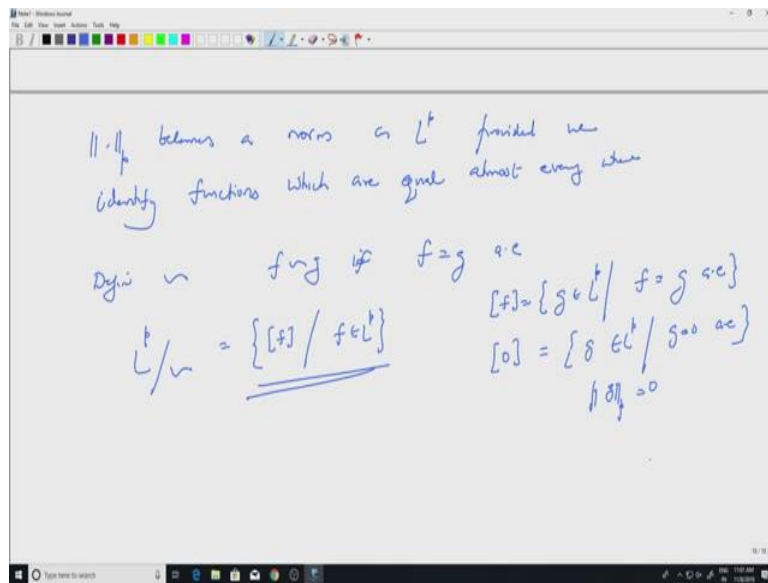 Note1 - Windows Journal
File Edit View Insert Actions Tools Help
‖·‖_p becomes a norm on L^p provided we
identify functions which are equal almost every where
Define ~ f~g if f=g a.e
L^p/~ = {[f] / f∈L^p}
[f] = {g∈L^p / f=g a.e}
[0] = {g∈L^p / g=0 a.e}
‖g‖_p=0
Type here to search
11:01 AM